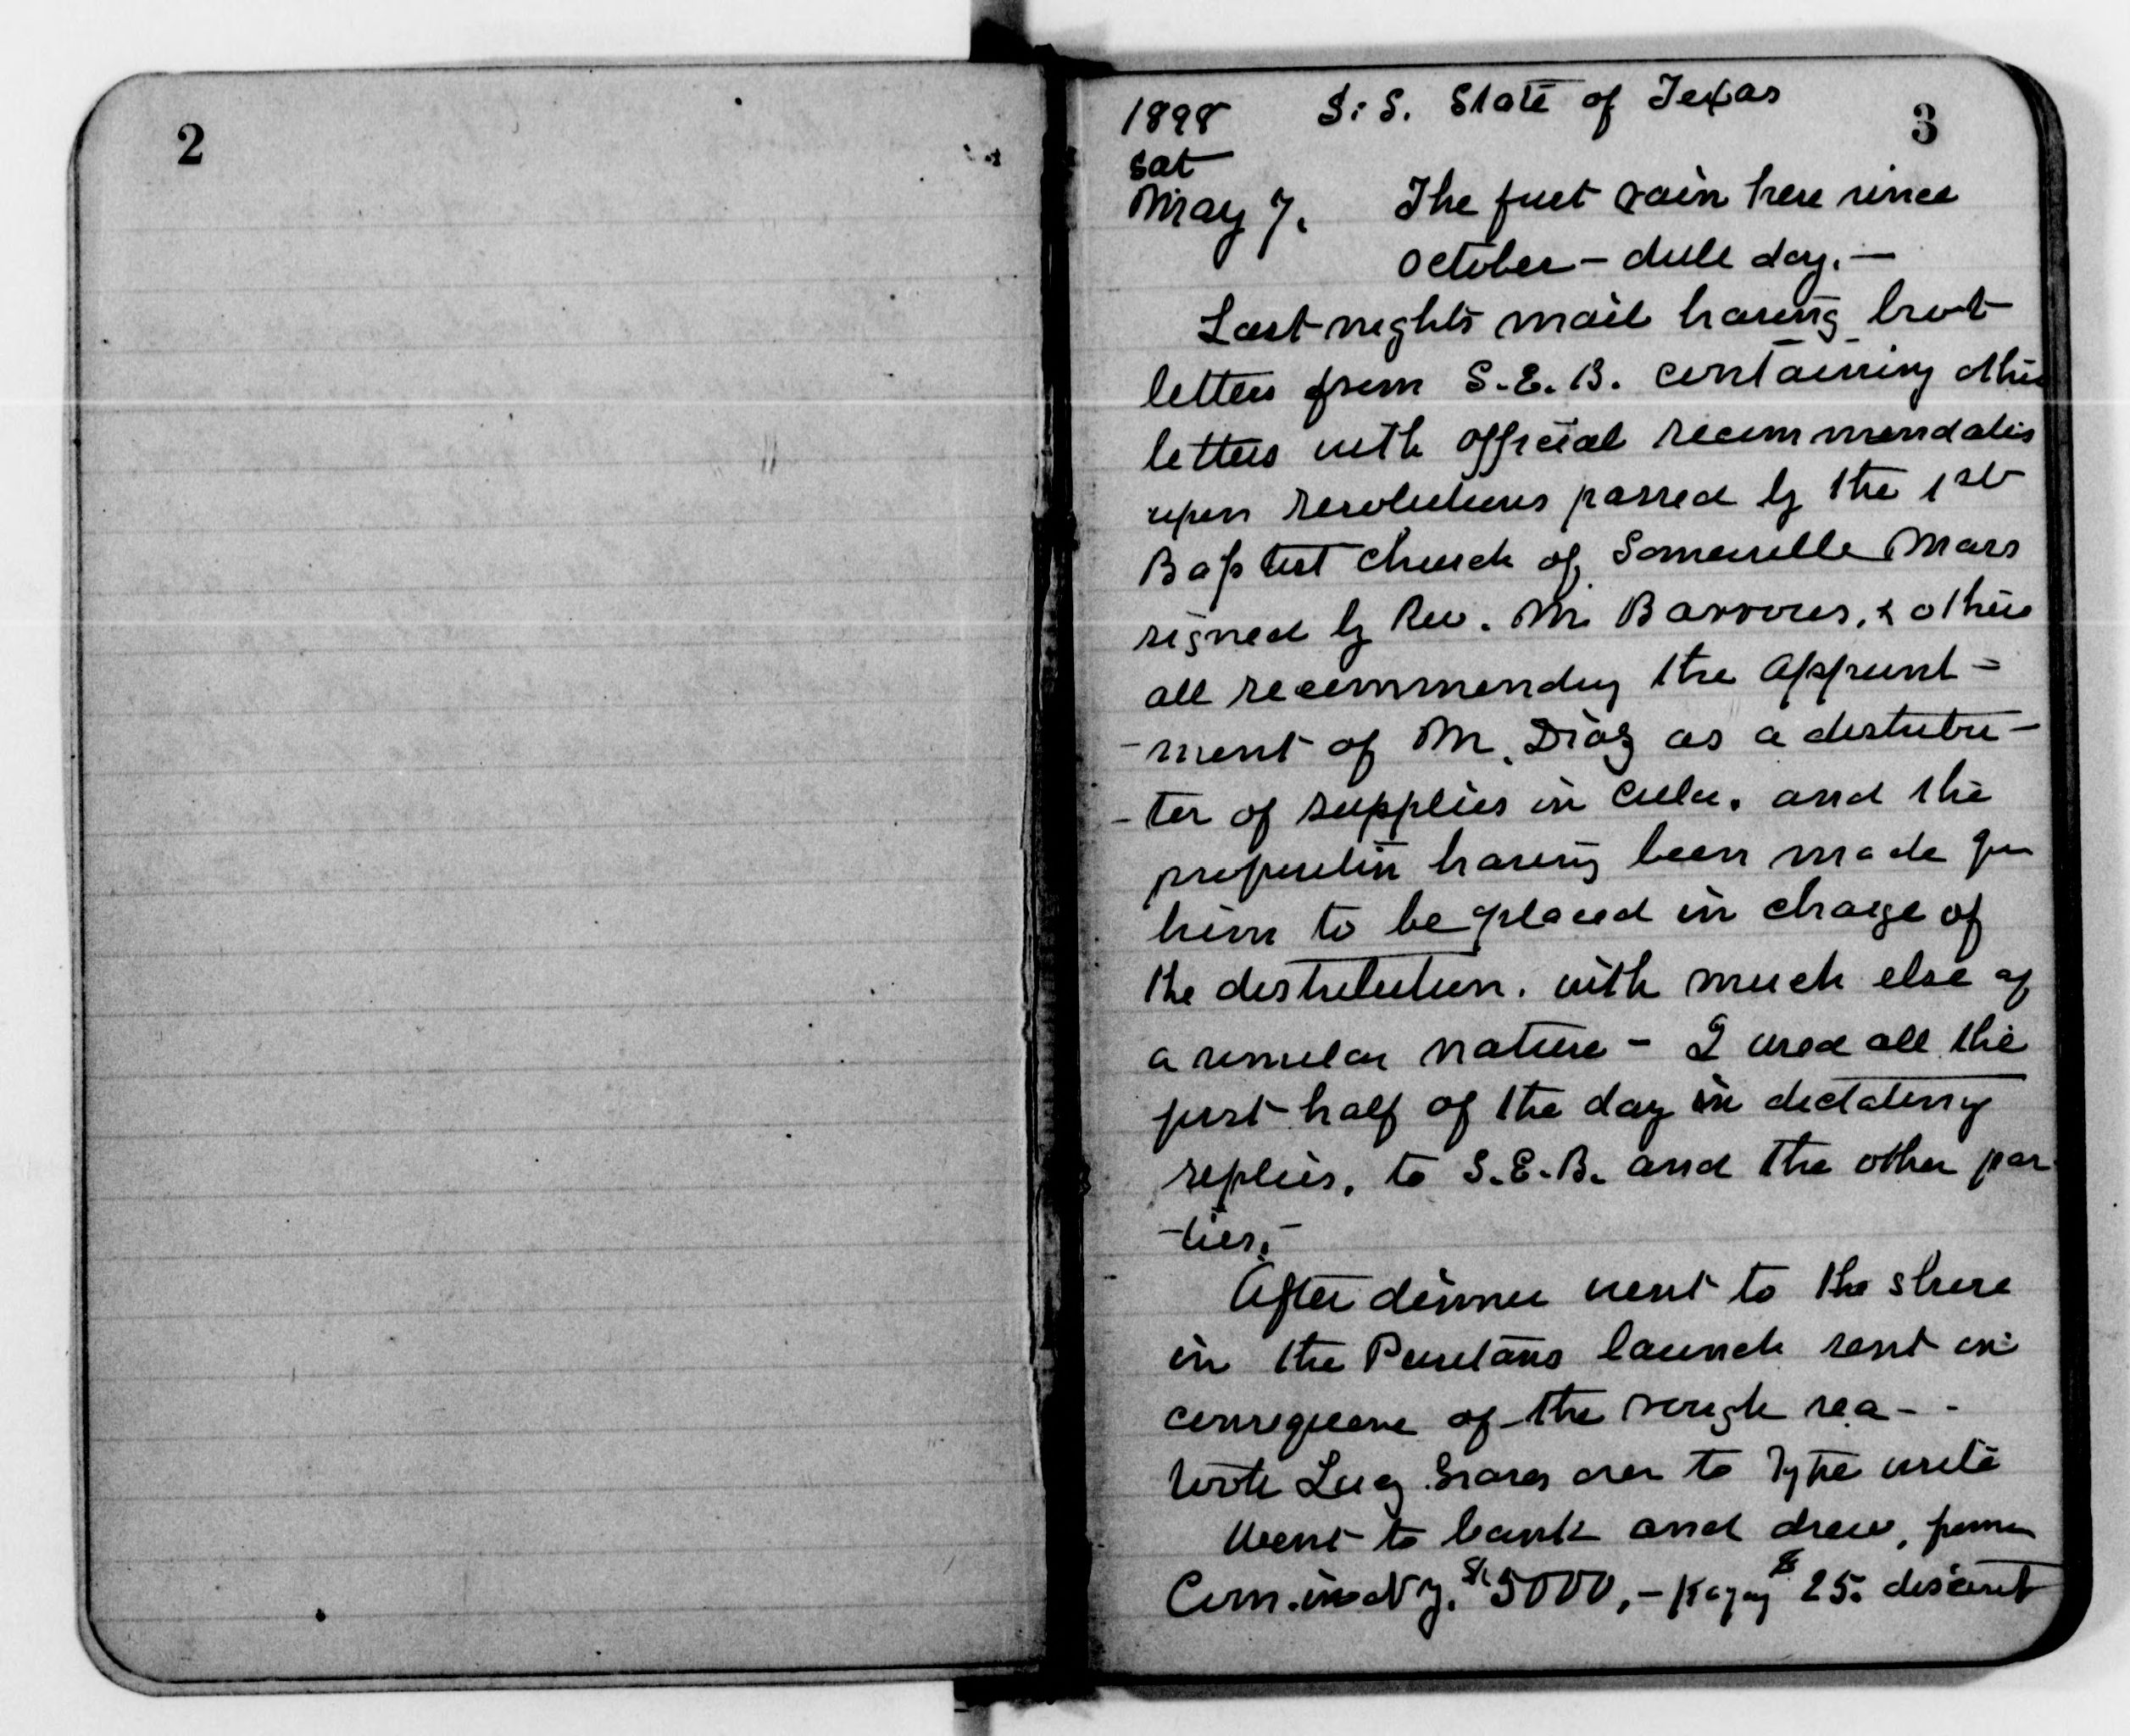 2
3
1898 S.S. State of Texas
Sat
May 7. The first rain here since
October – dull day. –
Last nights mail having brot
letters from S.E.B. containing other
letters with official recommendatis
upon resolutions passed by the 1st
Baptist Church of Somerville Mass
signed by Rev. Mr Barrows, & others
all recommending the appoint-
-ment of Mr. Diaz as a distribu-
-ter of supplies in Cuba. and the
proposition having been made for
him to be placed in charge of
the distribution. with much else of
a similar nature – I used all the
first half of the day in dictating
replies, to S.E.B. and the other par
-ties. –
After dinner went to the shore
in the Puritans launch sent in
consequence of the rough sea - -
took Lucy Graves over to Type write
Went to bank and drew, from
Com. in N.Y. $5000, – Paying $25. discount